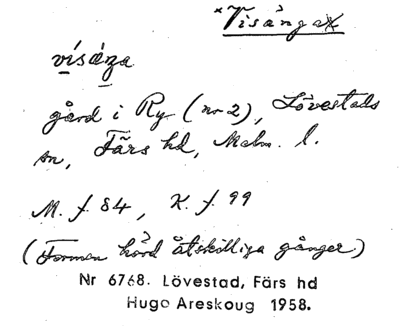 *Visånga
vísåŋa
gård i Ry (nr 2), Lövestads
sn, Färs hd, Malm. l.
M. f. 84, K. f. 99
(Formen hörd åtskilliga gånger)
Nr 6768. Lövestad, Färs hd
Hugo Areskoug 1958.